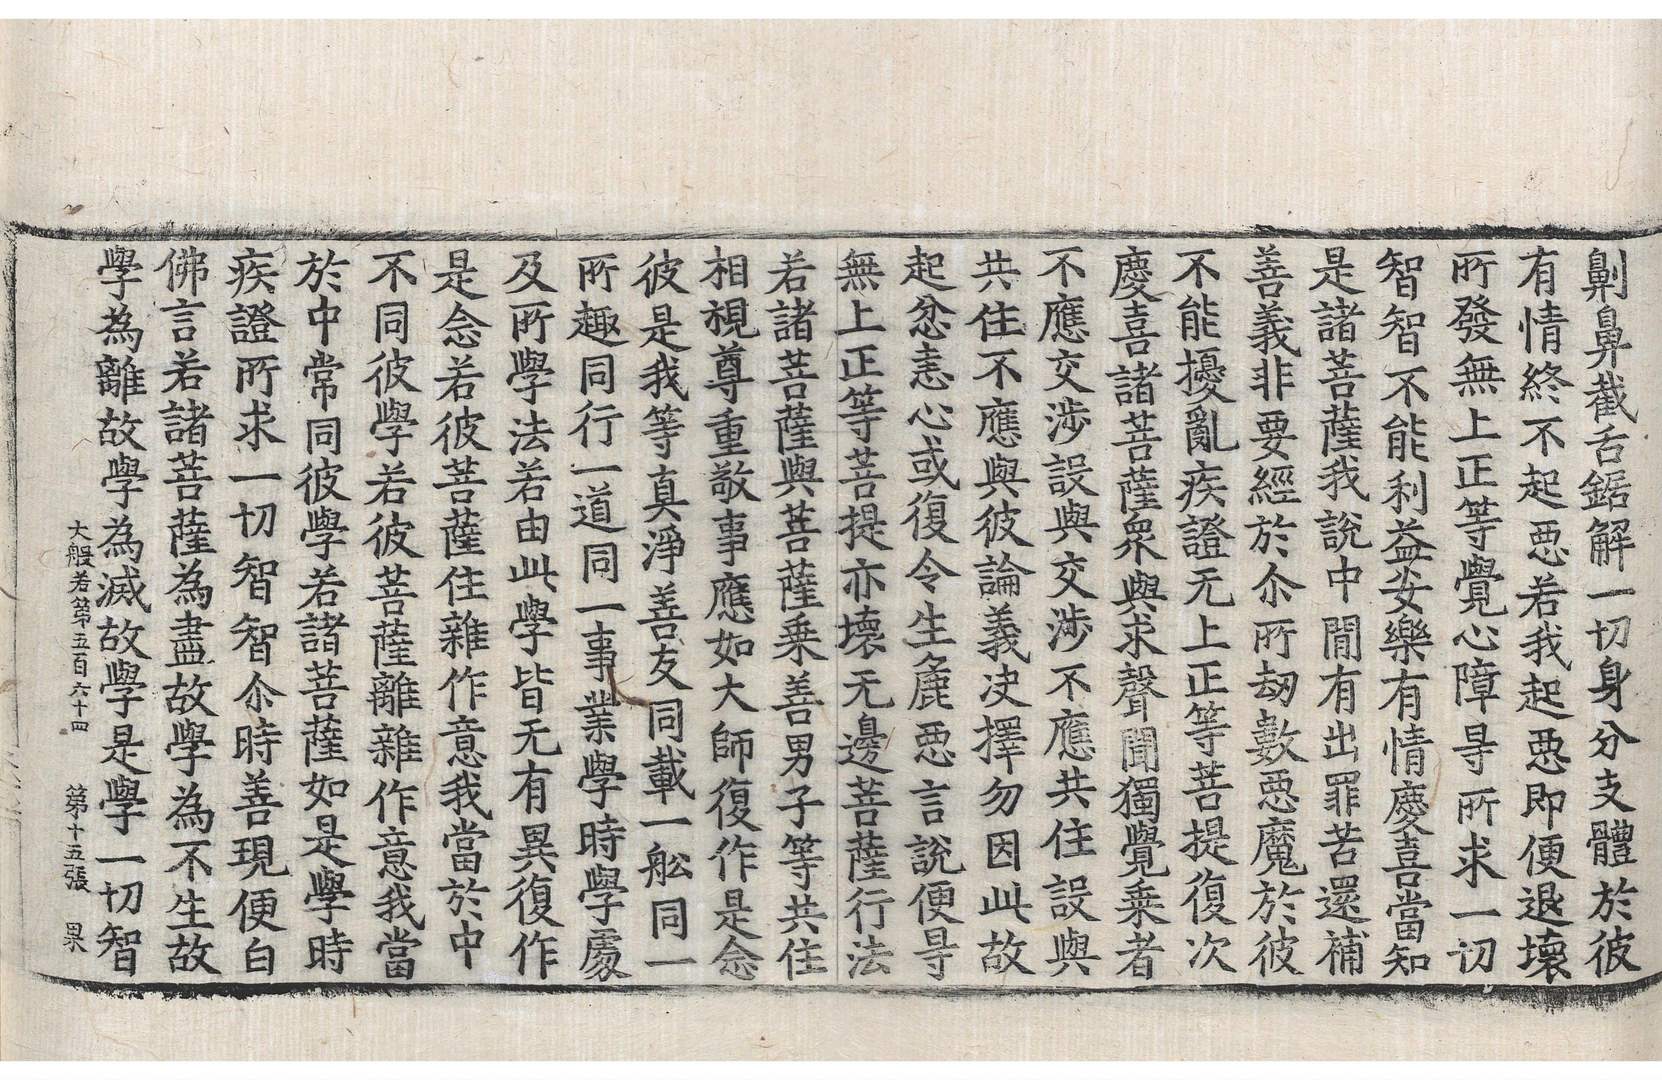 劓鼻截舌鋸解一切身分支體於彼
有情終不起惡若我起惡即便退壞
所發無上正等覺心障㝵所求一切
智智不能利益安樂有情慶喜當知
是諸菩薩我說中閒有出罪苦還補
善義非要經於尒所劫數惡魔於彼
不能擾亂疾證无上正等菩提復次
慶喜諸菩薩衆與求聲聞獨覺乗者
不應交涉設與交涉不應共住設與
共住不應與彼論義决擇勿因此故
起忿恚心或復令生麁惡言說便㝵
無上正等菩提亦壞无邊菩薩行法
若諸菩薩與菩薩乗善男子等共住
相視尊重敬事應如大師復作是念
彼是我等真淨善友同載一舩同一
所趣同行一道同一事業學時學處
及所學法若由此學皆无有異復作
是念若彼菩薩住雜作意我當於中
不同彼學若彼菩薩離雜作意我當
於中常同彼學若諸菩薩如是學時
疾證所求一切智智尒時善現便白
佛言若諸菩薩為盡故學為不生故
學為離故學為滅故學是學一切智
大般若第五百六十四　第十五張　果